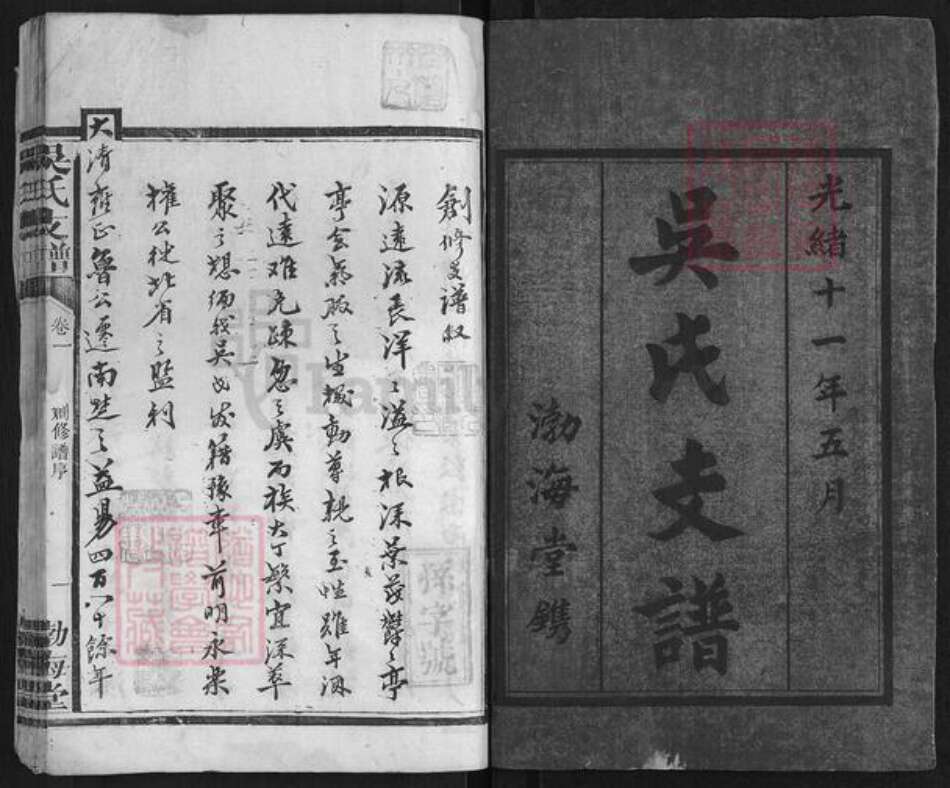 光緒十一年五月
吳氏支譜
渤海堂鐫
創修支譜叙
源遠流長洋々溢々根深葉茂欝々亭
亭会氣脉之生機動尊親之至性雖年湮
代遠难免疎忽之虞而族大丁繁宜深萃
聚之想緬我吳氏發籍豫章前明永樂
權公徙北省之監利
大清雍正魯公遷南楚之益昜四百八十餘年
吳氏支譜
卷一
創修譜序
一
渤海堂
孫字號